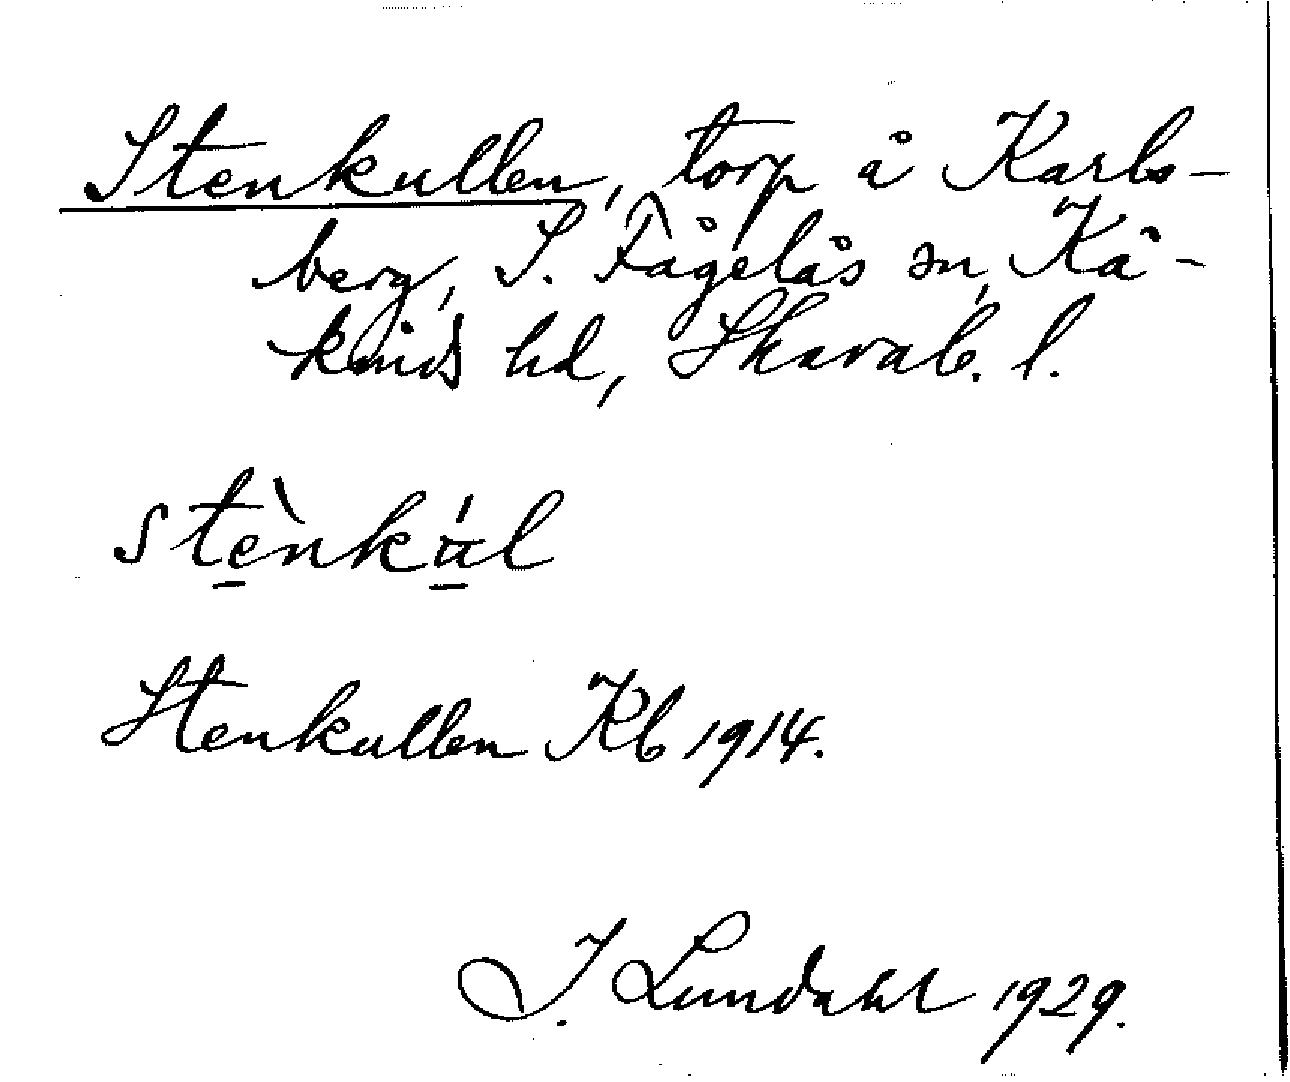 Stenkullen, torp å Karls-
berg, S. Fågelås sn, Kå-
kinds hd, Skarab. l.
stè̠nkú̠l
Stenkullen Kb 1914.
I. Lundahl 1929.